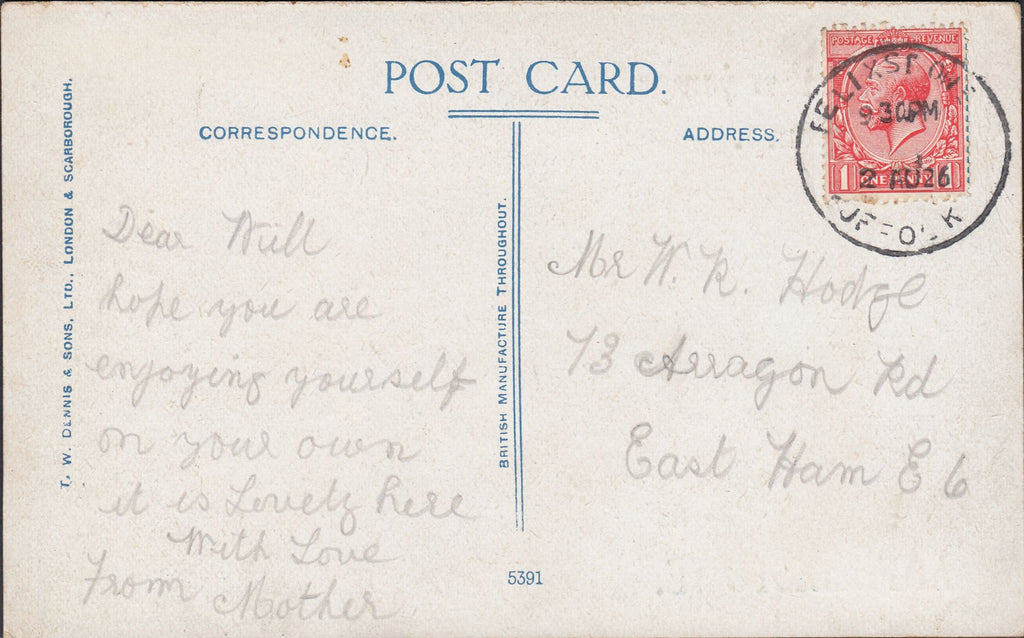 POST CARD.
CORRESPONDENCE.
ADDRESS.
T. W. DENNIS & SONS, LTD., LONDON & SCARBOROUGH.
BRITISH MANUFACTURE THROUGHOUT.
POSTAGE REVENUE
1 ONE PENNY 1
FELIXSTOWE
9 30PM
2 AU 26
SUFFOLK
Dear Will
hope you are
enjoying yourself
on your own
it is Lovely here
With Love
From Mother
Mr W. R. Hodge
73 Arragon Rd
East Ham E 6
5391